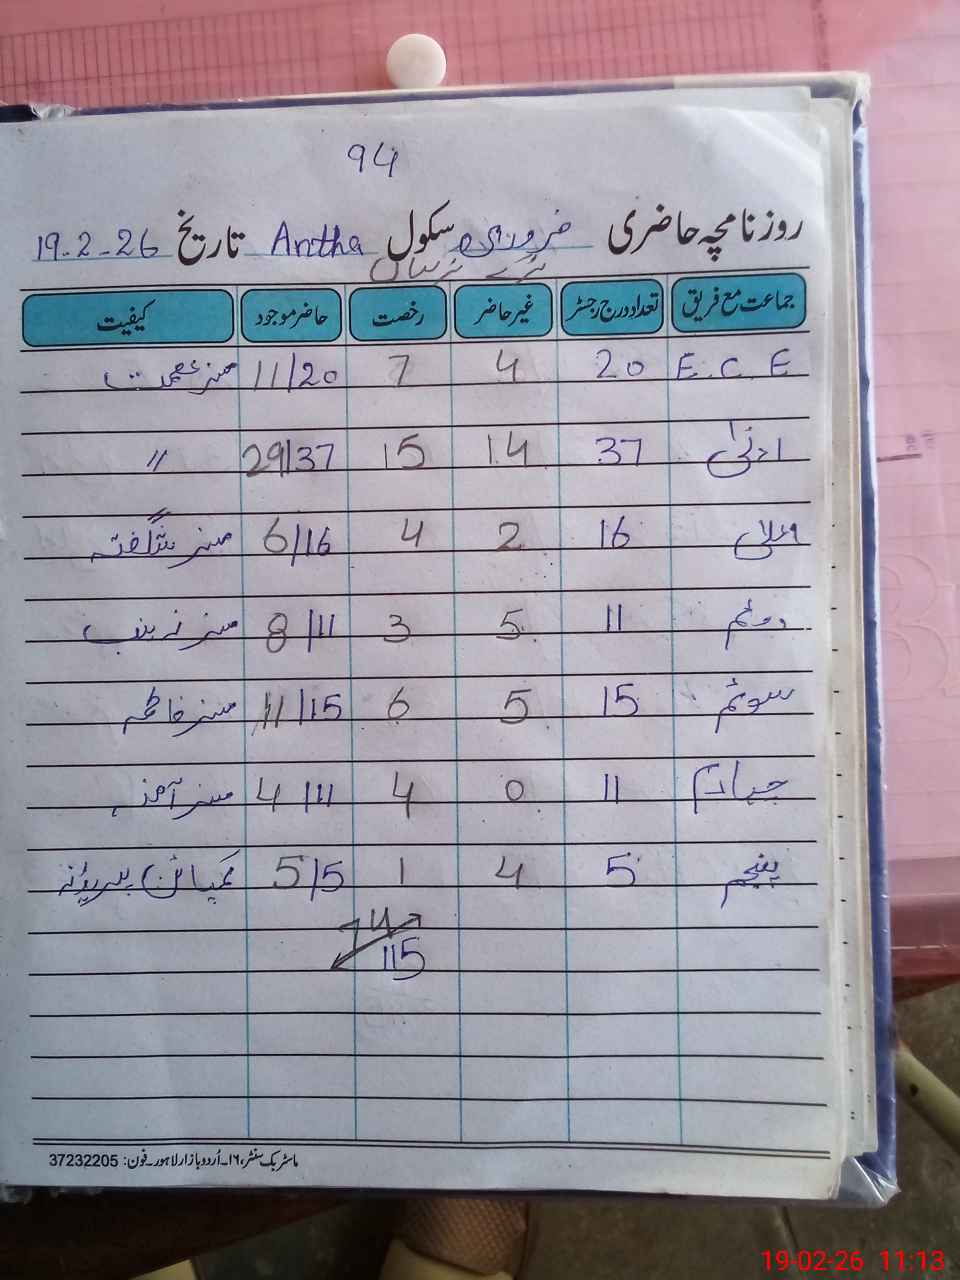 94
روزنامچہ حاضری ضروری سکول Antha تاریخ 19.2-26
جماعت مع فریق تعداد درج رجسٹر غیر حاضر رخصت حاضر موجود کیفیت
E.C.E 20 4 7 11/20 مسز عصمت
ادنیٰ 37 14 15 29/37 //
اعلیٰ 16 2 4 6/16 مسز شگفتہ
دوئم 11 5 3 8/11 مسز زینب
سوئم 15 5 6 11/15 مسز فاطمہ
چہارم 11 0 4 4/11 مسز آمنہ
پنجم 5 4 1 5/5
74
115
ماسٹر بک سنٹر، ۱۶۔اُردو بازار لاہور۔فون: 37232205
19-02-26 11:13